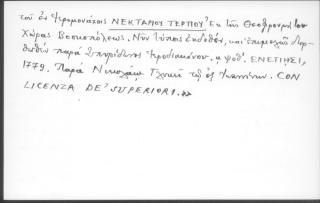 τοῦ ἐν Ἱερομονάχοις ΝΕΚΤΑΡΙΟΥ ΤΕΡΠΟΥ Ἐκ τῆς Θεοφρουρήτου
Χώρας Βοσκοπόλεως. Νῦν τύποις ἐκδοθέν, καὶ ἐπιμελῶς διορ-
θωθέν παρά Σπυρίδωνος Ἱεροδιακόνου. αψοθ'. ΕΝΕΤΙΗΣΙ,
1779. Παρά Νικολάῳ Γλυκεῖ τῷ ἐξ Ἰωαννίνων. CON
LICENZA DE' SUPERIORI.